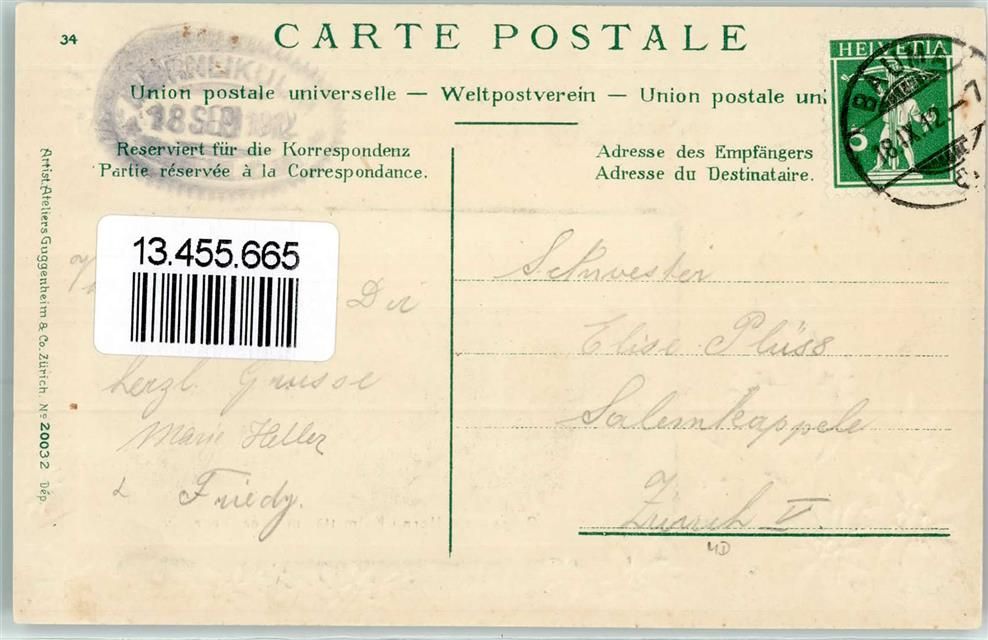 34
CARTE POSTALE
HELVETIA
BAUMA
18.IX.12.–7
5
18 SEP 1912
Union postale universelle — Weltpostverein — Union postale uni
Reserviert für die Korrespondenz
Partie réservée à la Correspondance.
Adresse des Empfängers
Adresse du Destinataire.
Artist. Ateliers Guggenheim & Co. Zürich. No 20032 Dép.
13.455.665
Dir
herzl. Grüsse
Marie Heller
& Friedy.
Schwester
Elise Plüss
Salemkappele
Zürich V.
MD